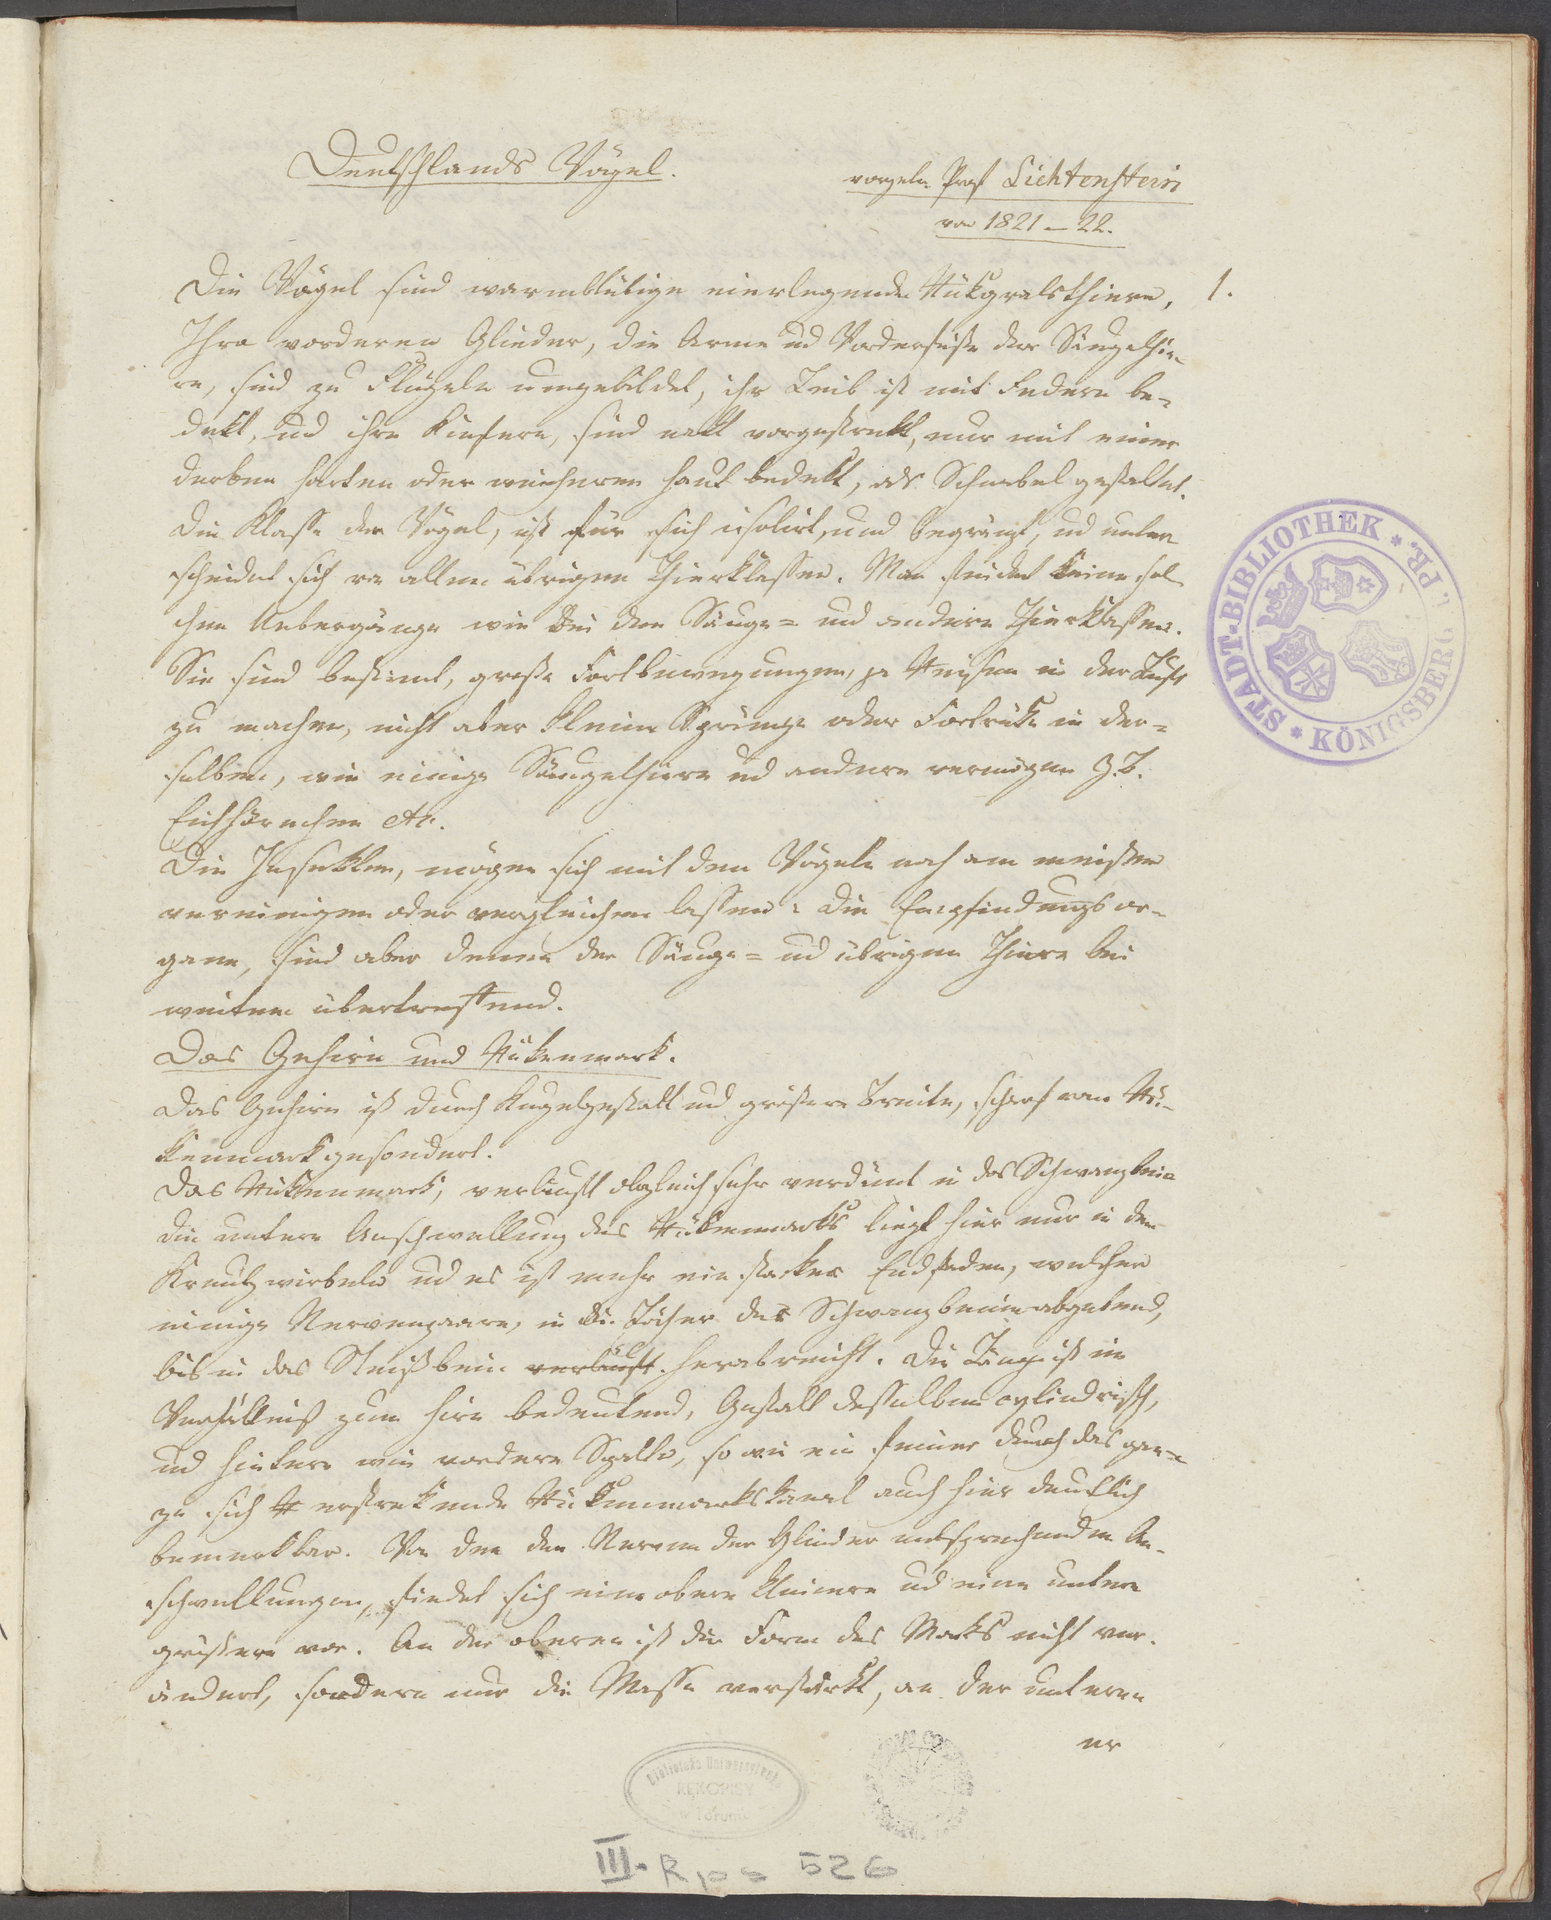 Deutschlands Vögel.
vorgeles. Prof Lichtenstein
von 1821–22.
1.
Die Vögel sind warmblütige eierlegende Rükgratsthiere,
Ihre vorderen Glieder, die Arme ud Vorderfüße der Säugethie-
re, sind zu Flügeln umgebildet, ihr Leib ist mit Federn be-
dekt, ud ihre Kiefern, sind nakt vorgestrekt, nur mit einer
derben harten oder weicheren Haut bedekt, als Schnabel gestaltet.
Die Klasse der Vögel, ist für sich isolirt, und begränzt, ud unter
scheidet sich von allen übrigen Thierklassen. Man findet keine sol
chen Uebergänge wie bei den Säuge= und andern Thierklassen.
Sie sind bestimt, große Fortbewegungen, ja Reisen in der Luft
zu machen, nicht aber kleine Sprünge oder Fortrüke in der=
selben, wie einige Säugethiere ud andere vermögen z.B.
Eichhörnchen etc.
Die Insekten, mögen sich mit den Vögeln noch am meisten
vereinigen oder vergleichen lassen: Die Empfindungsor-
gane, sind aber denen der Säuge= ud übrigen Thiere bei
weitem übertreffend.
Das Gehirn und Rükenmark.
Das Gehirn ist durch Kugelgestalt ud größere Breite, scharf vom Rü-
kenmark gesondert.
Das Rükenmark, verläuft obgleich sehr verdünt in das Schwanzbein
die untere Anschwellung des Rükenmarks liegt hier nur in den
Kreutzwirbeln ud es ist mehr ein starker Endfaden, welcher
einige Nervenpaare, in die Löcher des Schwanzbeins abgebend,
bis in das Steißbein verläuft. herabreicht. Die Länge ist im
Verhältniß zum Hirn bedeutend, Gestalt desselben cylindrisch,
ud hintere wie vordere Spalte, so wie ein feiner durch das gan-
ze sich erstrekende Rükenmarkskanal auch hier deutlich
bemerkbar. Von den den Nerven der Glieder entsprechenden An-
schwellungen, findet sich eine obere kleinere ud eine untere
größere vor. An der oberen ist die Form des Marks nicht ver-
ändert, sondern nur die Masse verstärkt, an der unteren
er
STADT-BIBLIOTHEK * KÖNIGSBERG I. PR. *
Biblioteka Uniwersytecka
RĘKOPISY
w Toruniu
III. Rps 526